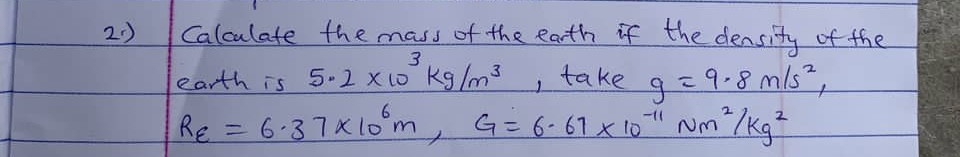 2.) Calculate the mass of the earth if the density of the
earth is 5.2 x 10³ kg/m³ , take g = 9.8 m/s²,
RE = 6.37 x 10⁶ m, G = 6.67 x 10⁻¹¹ Nm²/kg²